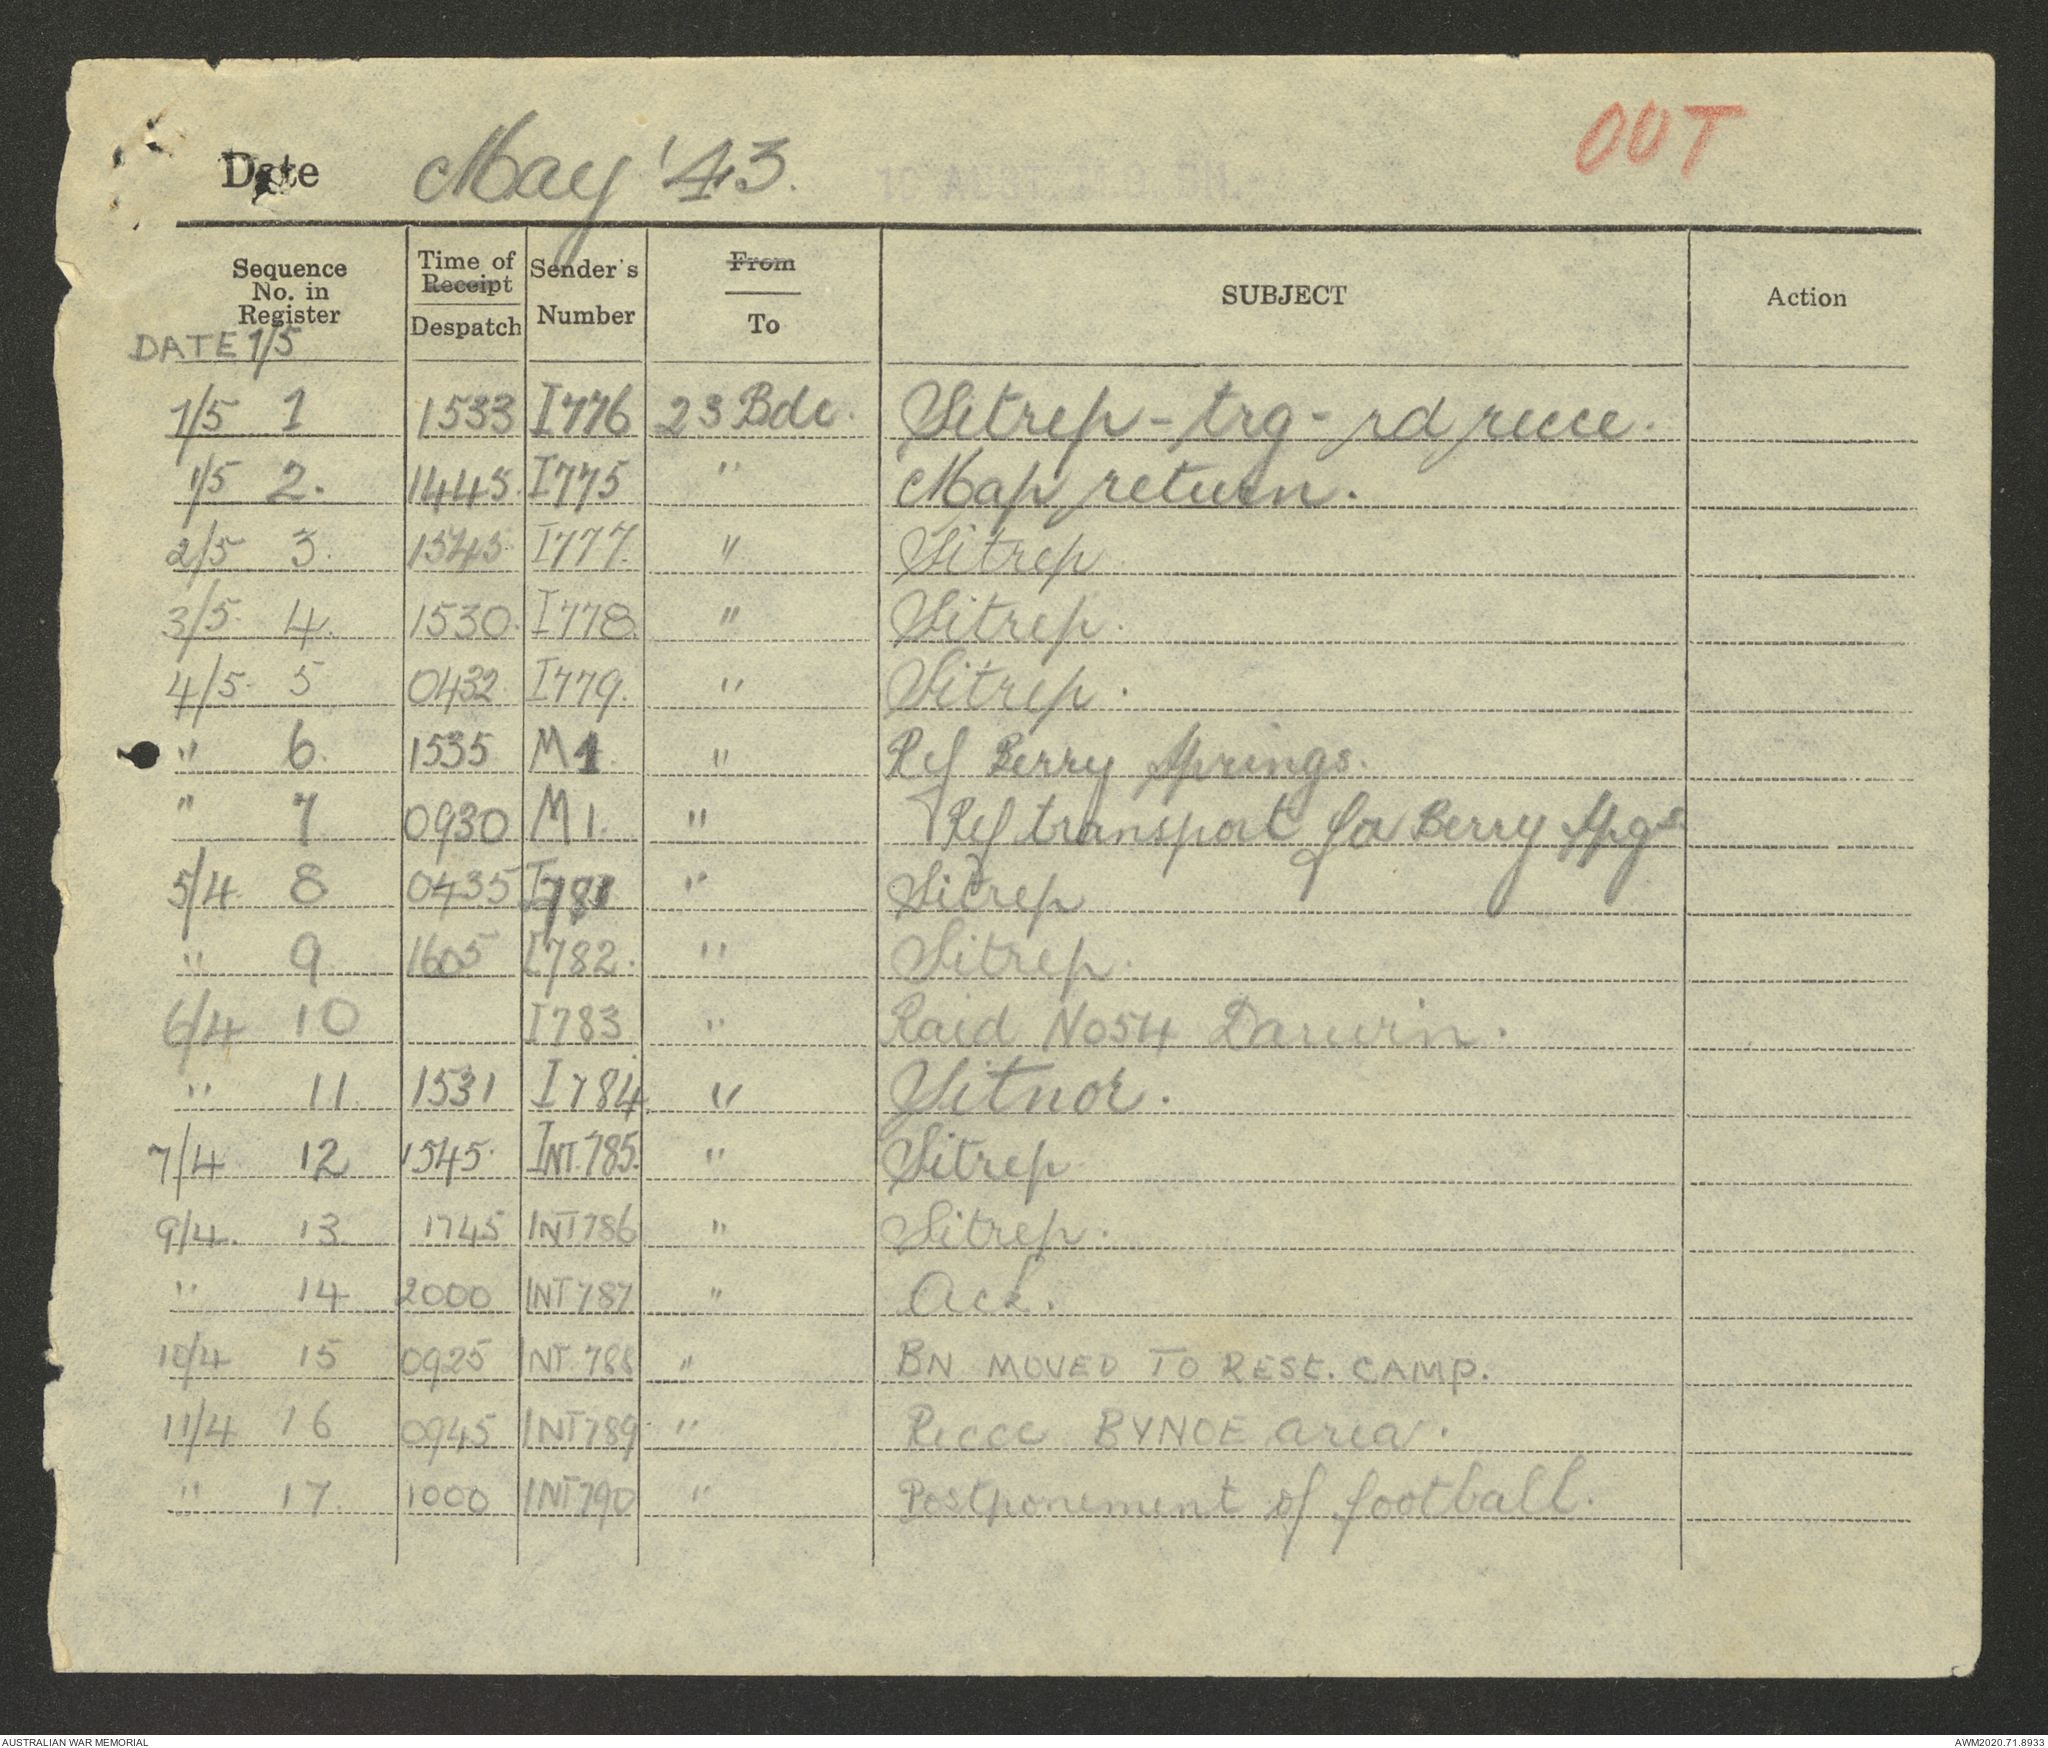 OUT
Date May '43.
Sequence No. in Register Time of Receipt Despatch Sender's Number From To SUBJECT Action
DATE 1/5
1/5 1 1533 I776 23 Bde. Sitrep - trg - rd recce.
1/5 2. 1445. I775 " Map return.
2/5 3. 1545. I777. " Sitrep
3/5. 4. 1530. I778. " Sitrep.
4/5. 5 0432. I779. " Sitrep.
" 6. 1535 M1. " Ref Berry Springs.
" 7 0930 M1. " Ref transport for Berry Spgs
5/4 8 0435 I781 " Sitrep
" 9 1605 I782. " Sitrep.
6/4 10 I783 " Raid No54 Darwin.
" 11. 1531 I784. "
7/4 12 1545. INT.785. " Sitrep
9/4. 13 1745 INT786 " Sitrep.
" 14 2000 INT787 " Ack.
10/4 15 0925 INT.788 " BN MOVED TO REST. CAMP.
11/4 16 0945 INT789 " Recce BYNOE area.
" 17. 1000 INT790 " Postponement of football.
AUSTRALIAN WAR MEMORIAL AWM2020.71.8933